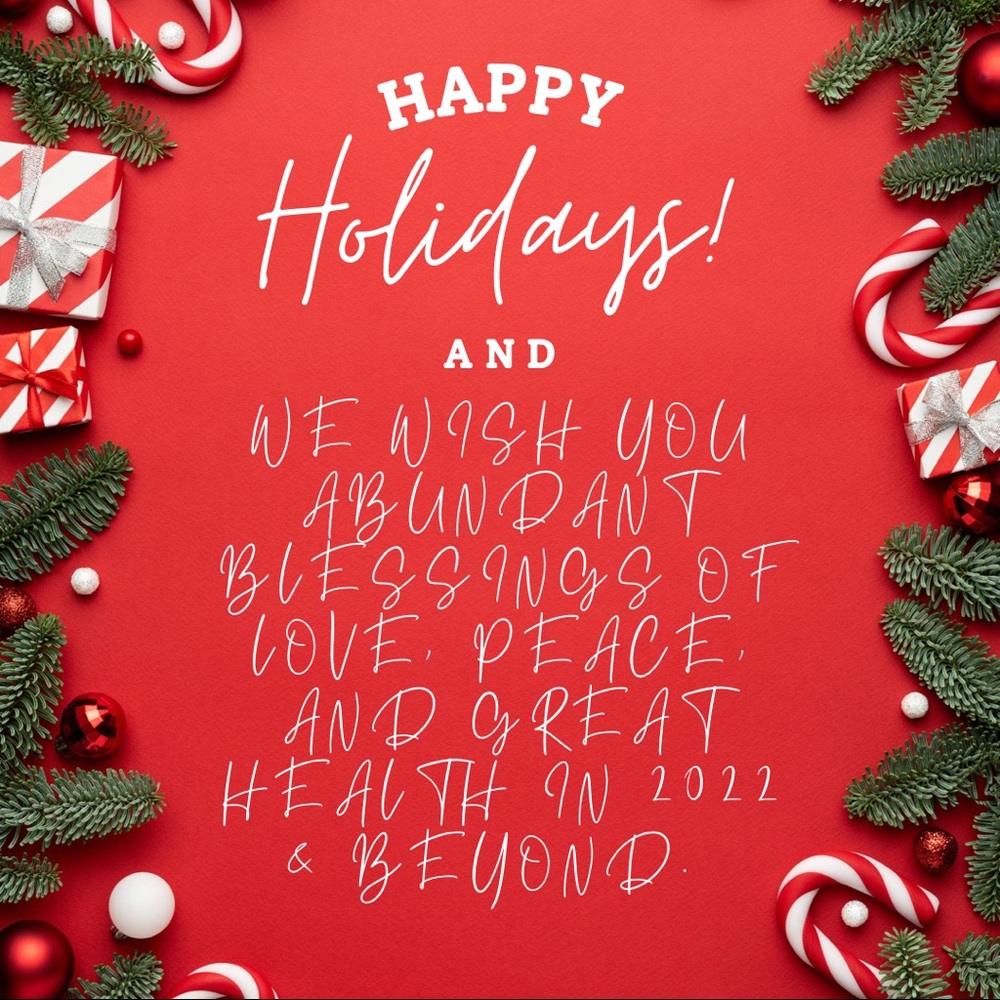 HAPPY
Holidays!
AND
WE WISH YOU
ABUNDANT
BLESSINGS OF
LOVE, PEACE,
AND GREAT
HEALTH IN 2022
& BEYOND.